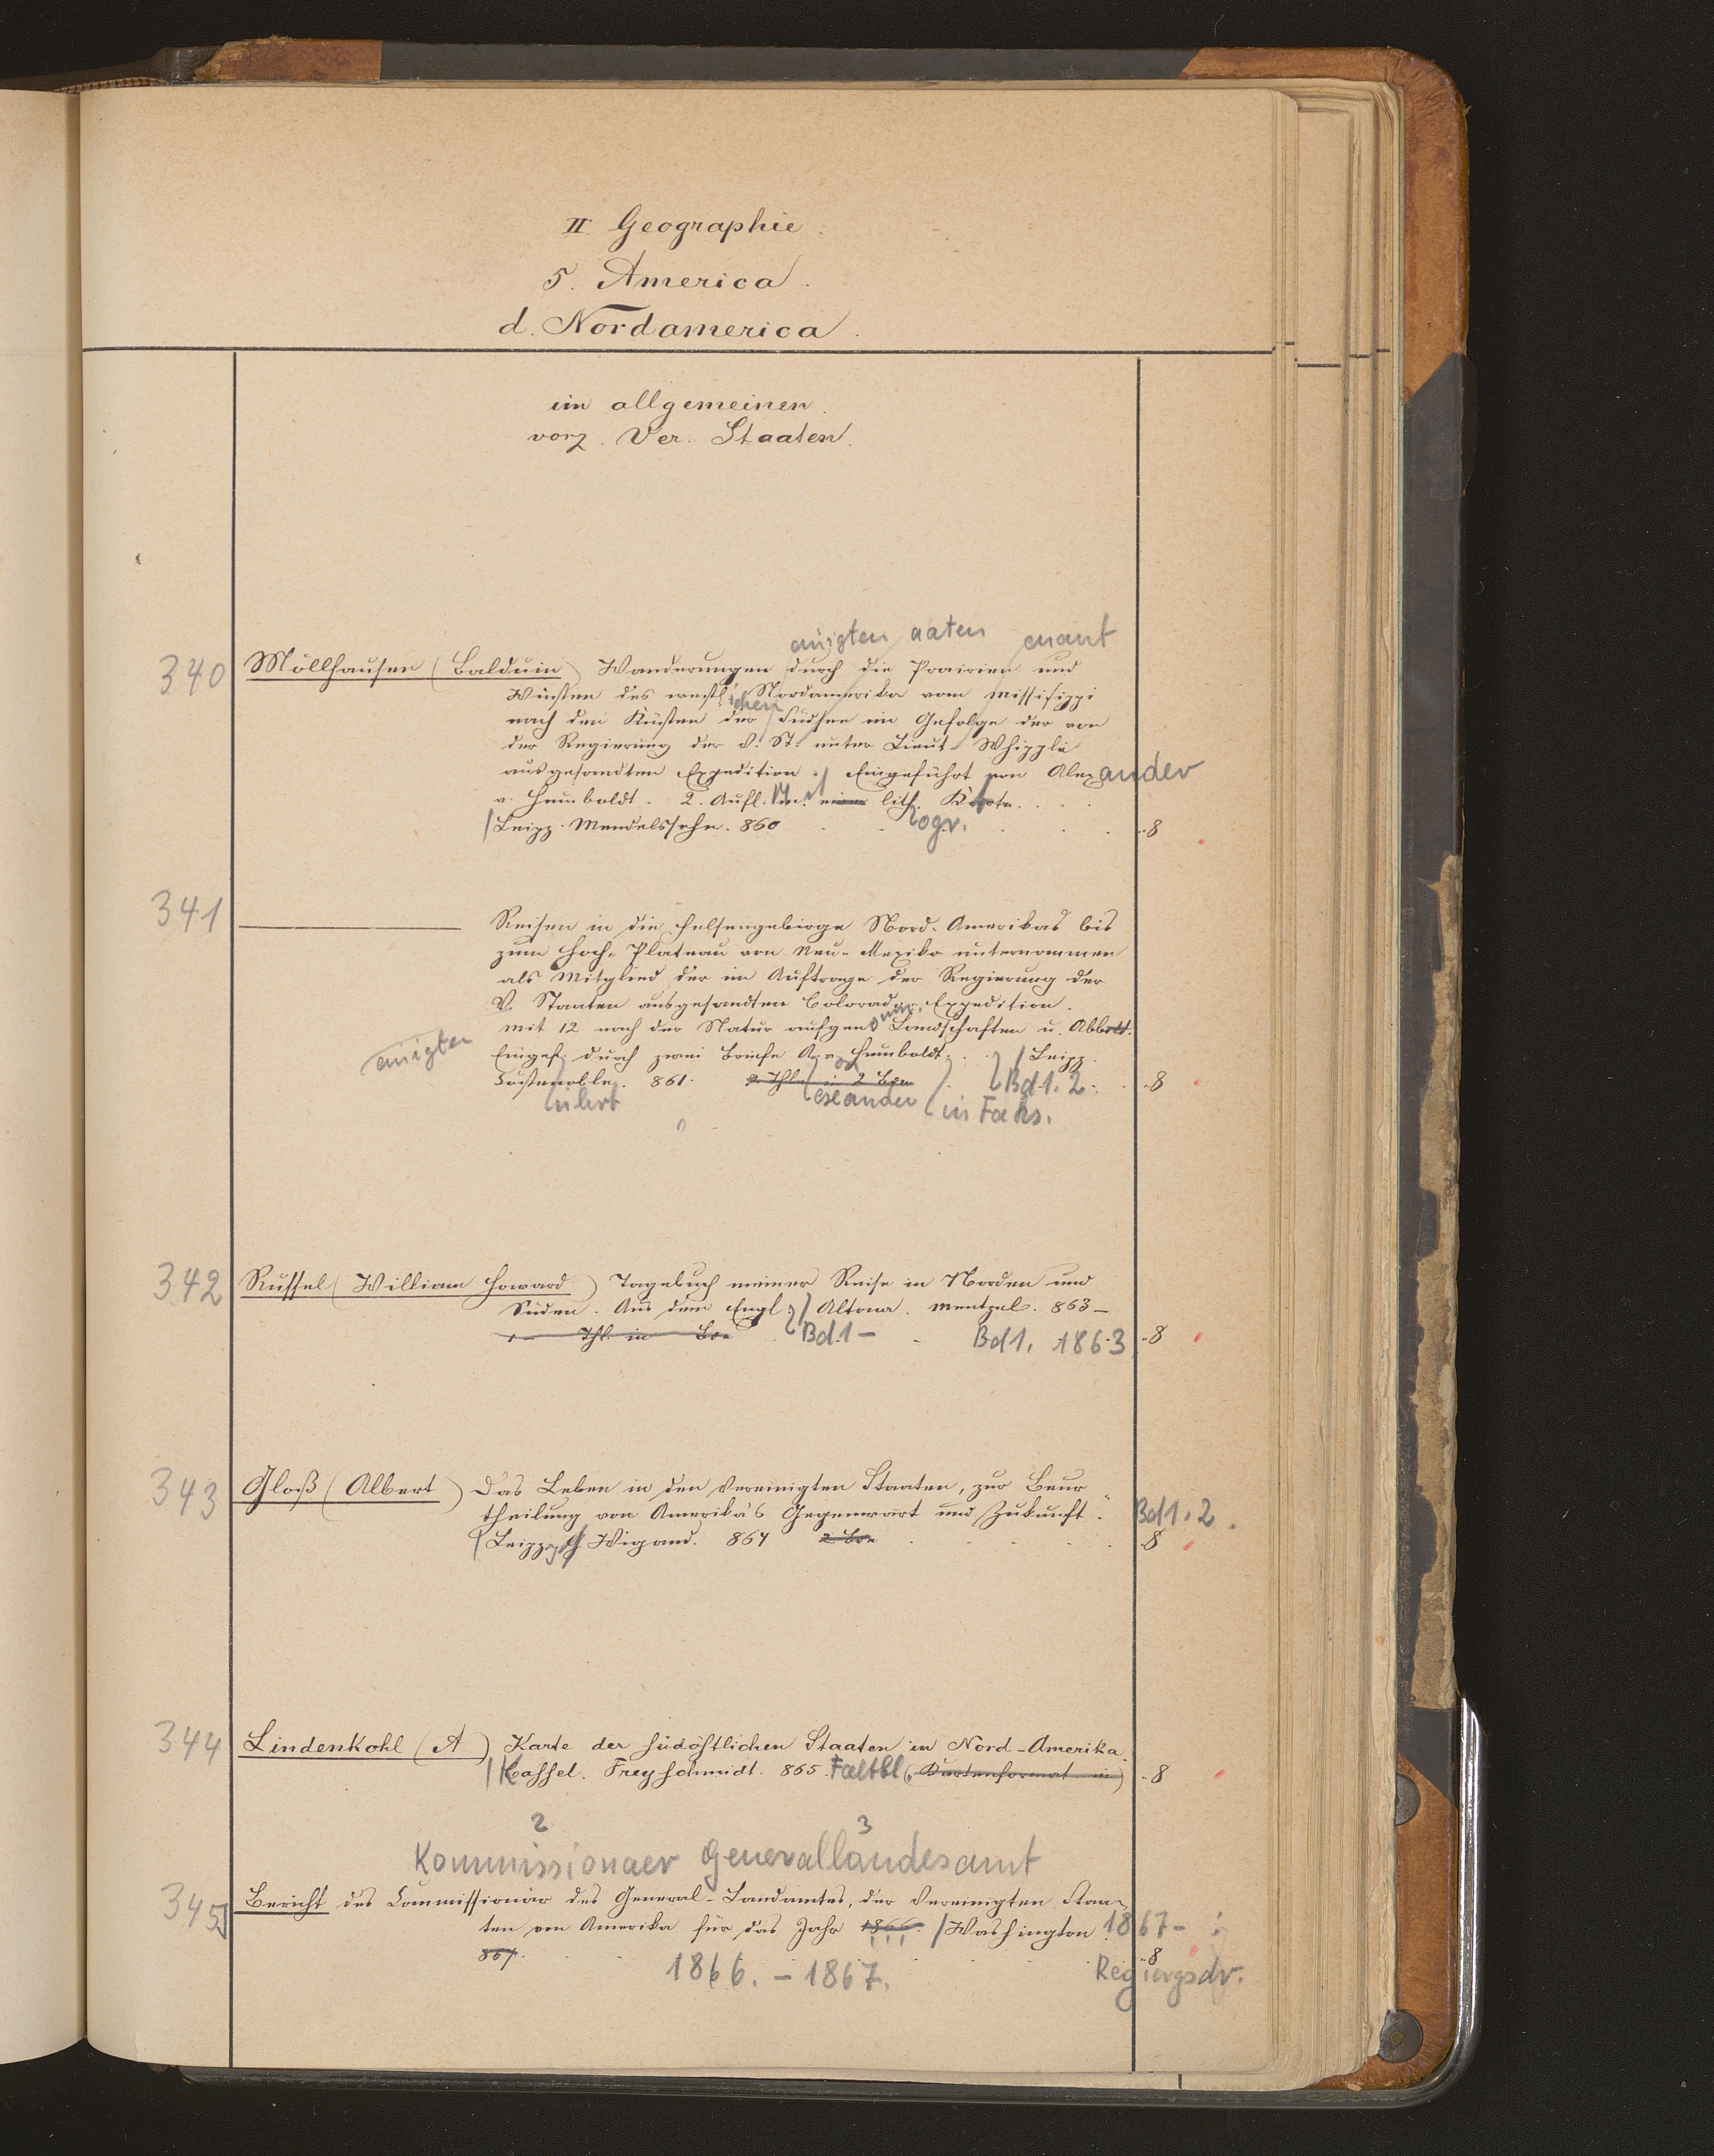 II Geographie.
5. America.
d. Nordamerica.
im allgemeinen.
vorz. Ver. Staaten.
einigten aaten enant
340 Möllhausen (Balduin) Wanderungen durch die Prairien und
Wüsten des westl. Nordamerika vom Missisippi
ichen
nach den Küsten der Südsee im Gefolge der von
der Regierung der V. St. unter Lieut. Whipple
ausgesandten Expedition. Eingeführt von Alexander
v. Humboldt. 2. Aufl. M. lith. Karte.
ogr.
Leipz. Mendelssohn. 860 8
341 Reisen in die Felsengebirge Nord-Amerikas bis
zum Hoch-Plateau von Neu-Mexiko unternommen
als Mitglied der im Auftrage der Regierung der
V. Staaten ausgesandten Colorado-Expedition.
Mit 12 nach der Natur aufgen. Landschaften u. Abbild.
einigten
Eingef. durch zwei Briefe A. v. Humboldt. Leipz.
Costenoble. 861. 2 Thle in 2 Bde Bd. 1. 2. 8
ührt exander in Faks.
342 Russel (William Howard) Tagebuch meiner Reise in Norden und
Süden. Aus dem Engl. Altona. Mentzel. 863–
Thl. in Bde Bd. 1 – Bd 1. 1863 8
343 Gloß (Albert) Das Leben in den Vereinigten Staaten, zur Beur-
theilung von Amerika's Gegenwart und Zukunft. Bd 1. 2.
Leipz. Wigand. 864 2 Bde 8
344 Lindenkohl (A) Karte der südöstlichen Staaten in Nord-Amerika.
Kassel. Freyschmidt. 865. Faltbl. (Kartenformat in) 8
2 3
Kommissionaer Generallandesamt
345 Bericht des Commissionär des General-Landamtes, der Vereinigten Staa-
ten von Amerika für das Jahr 1866. Washington 1867–
867. 8
1866. – 1867. Regierungsdr.